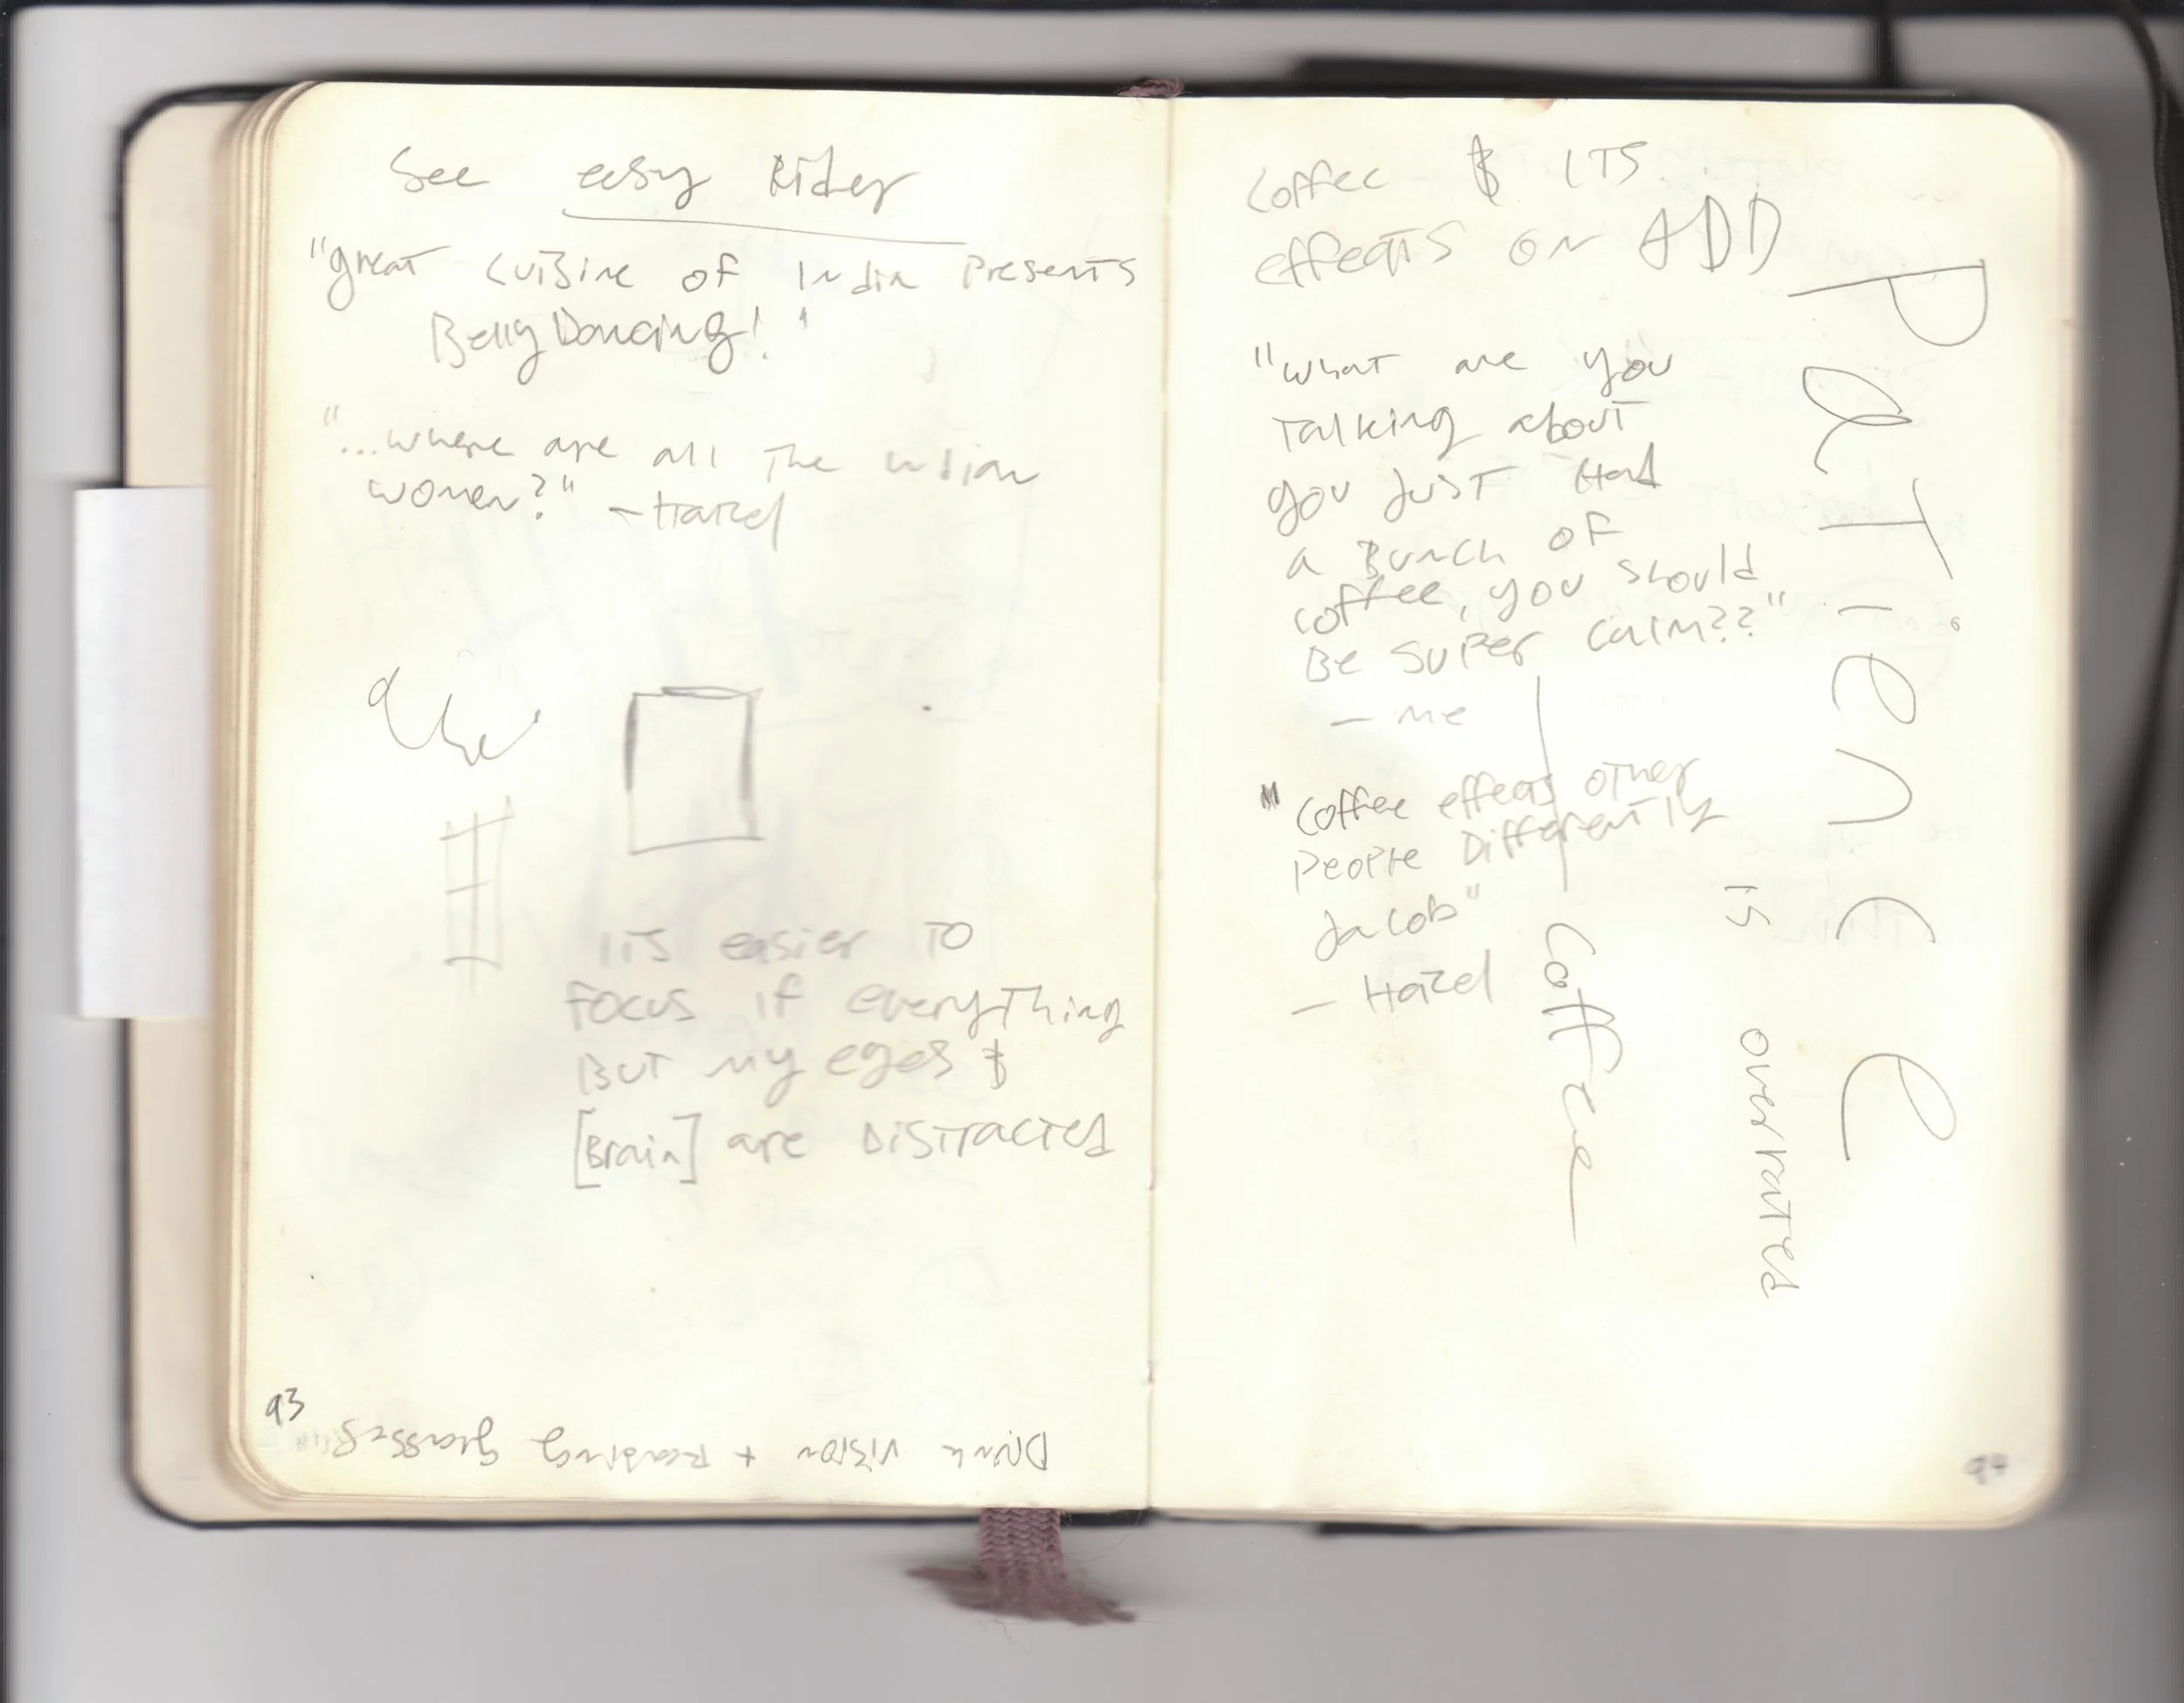 See easy Rider
"great cuisine of India Presents
Belly Dancing!"
"...where are all the indian
women?" - Hazel
ITS easier TO
FOCUS if everyThing
BUT my eyes &
[Brain] are DISTRACTED
93
Drunk vision + Reading glasses
Coffee & ITS
effects on ADD
"what are you
Talking about
you JUST Had
a BUNCH OF
coffee, you should
Be SUPer calm??"
- me
"Coffee effects other
People Differently
Jacob"
- Hazel
Coffee
PaTience
is overrated
94